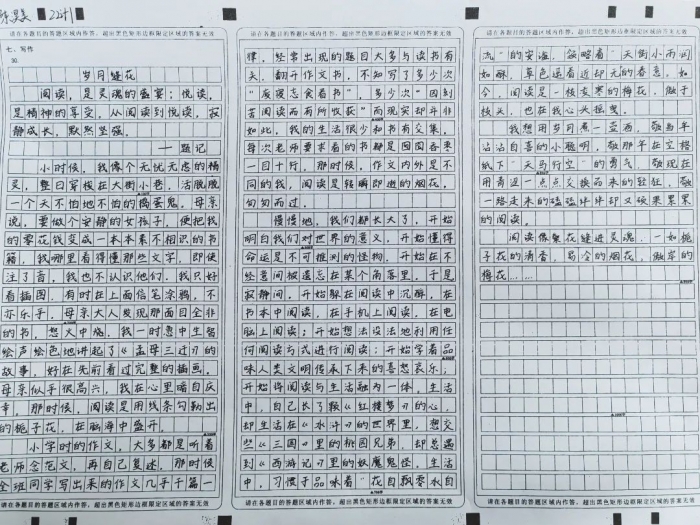 请在各题目的答题区域内作答，超出黑色矩形边框限定区域的答案无效
七、写作
30.
岁月缝花
阅读，是灵魂的盛宴；悦读，
是精神的享受。从阅读到悦读，寂
静成长，默然坚强。
——题记
小时候，我像个无忧无虑的精
灵，整日穿梭在大街小巷，活脱脱
一个天不怕地不怕的捣蛋鬼。母亲
说，要做个安静的女孩子，便把我
的零花钱变成一本本素不相识的书
籍，我哪里看得懂那些文字，即使
注了音，我也不认识他们，我只好
看插图，有时在上面信笔涂鸦，不
亦乐乎，母亲大人发现那面目全非
的书，怒火中烧，我一时急中生智
绘声绘色地讲起了《孟母三迁》的
故事，好在先前看过完整的插画，
母亲似乎很高兴，我在心里暗自庆
幸，那时候，阅读是用线条勾勒出
的栀子花，在脑海中盛开。
小学时的作文，大多都是听着
老师念范文，再自己复述，那时候
全班同学写出来的作文几乎千篇一
请在各题目的答题区域内作答，超出黑色矩形边框限定区域的答案无效
请在各题目的答题区域内作答，超出黑色矩形边框限定区域的答案无效
律，经常出现的题目大多与读书有
关，翻开作文书，不知写了多少次
“废寝忘食看书”，多少次“因刻
苦阅读而有所收获”而现实却斗非
如此，我的生活很少和书有交集，
每次老师要求看的书都是囫囵吞枣
一目十行，那时候，作文内外是不
同的我，阅读是转瞬即逝的烟花，
匆匆而过。
慢慢地，我们都长大了，开始
明白我们对世界的意义，开始懂得
命运是不可推测的怪物，开始在不
经意间被遗忘在某个角落里，于是
寂静间，开始躲在阅读中沉醉，在
书本中阅读，在手机上阅读，在电
脑上阅读；开始想法设法地利用任
何阅读方式进行阅读；开始学着品
味人类文明传承下来的喜怒哀乐；
开始将阅读与生活融为一体，生活
中，自己长了颗《红楼梦》的心，
却生活在《水浒》的世界里，想交
些《三国》里的桃园兄弟，却总遇
到《西游记》里的妖魔鬼怪，生活
中，习惯于品味着“花自飘零水自
请在各题目的答题区域内作答，超出黑色矩形边框限定区域的答案无效
请在各题目的答题区域内作答，超出黑色矩形边框限定区域的答案无效
流”的安谧，领略着“天街小雨润
如酥，草色遥看近却无的春意，如
今，阅读是一枝友枣的梅花，傲于
枝头，也在我心头摇曳。
我想用岁月煮一壶酒，敬当年
沾沾自喜的小聪明，敬那年在空格
纸下“天马行空”的勇气，敬现在
用青涩一点点交换而来的轻狂，敬
一路走来的磕磕绊绊却又硕果累累
的阅读。
阅读像絮花缝进灵魂，一如栀
子花的清香，易冷的烟花，傲岸的
梅花……
请在各题目的答题区域内作答，超出黑色矩形边框限定区域的答案无效